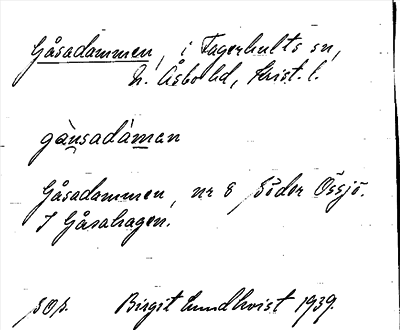 Gåsadammen, i Fagerhults sn,
N. Åsbo hd, Krist. l.
gånsadàman
Gåsadammen, nr 8 Söder Össjö.
I Gåsahagen.
sop. Birgit Lundkvist 1939.